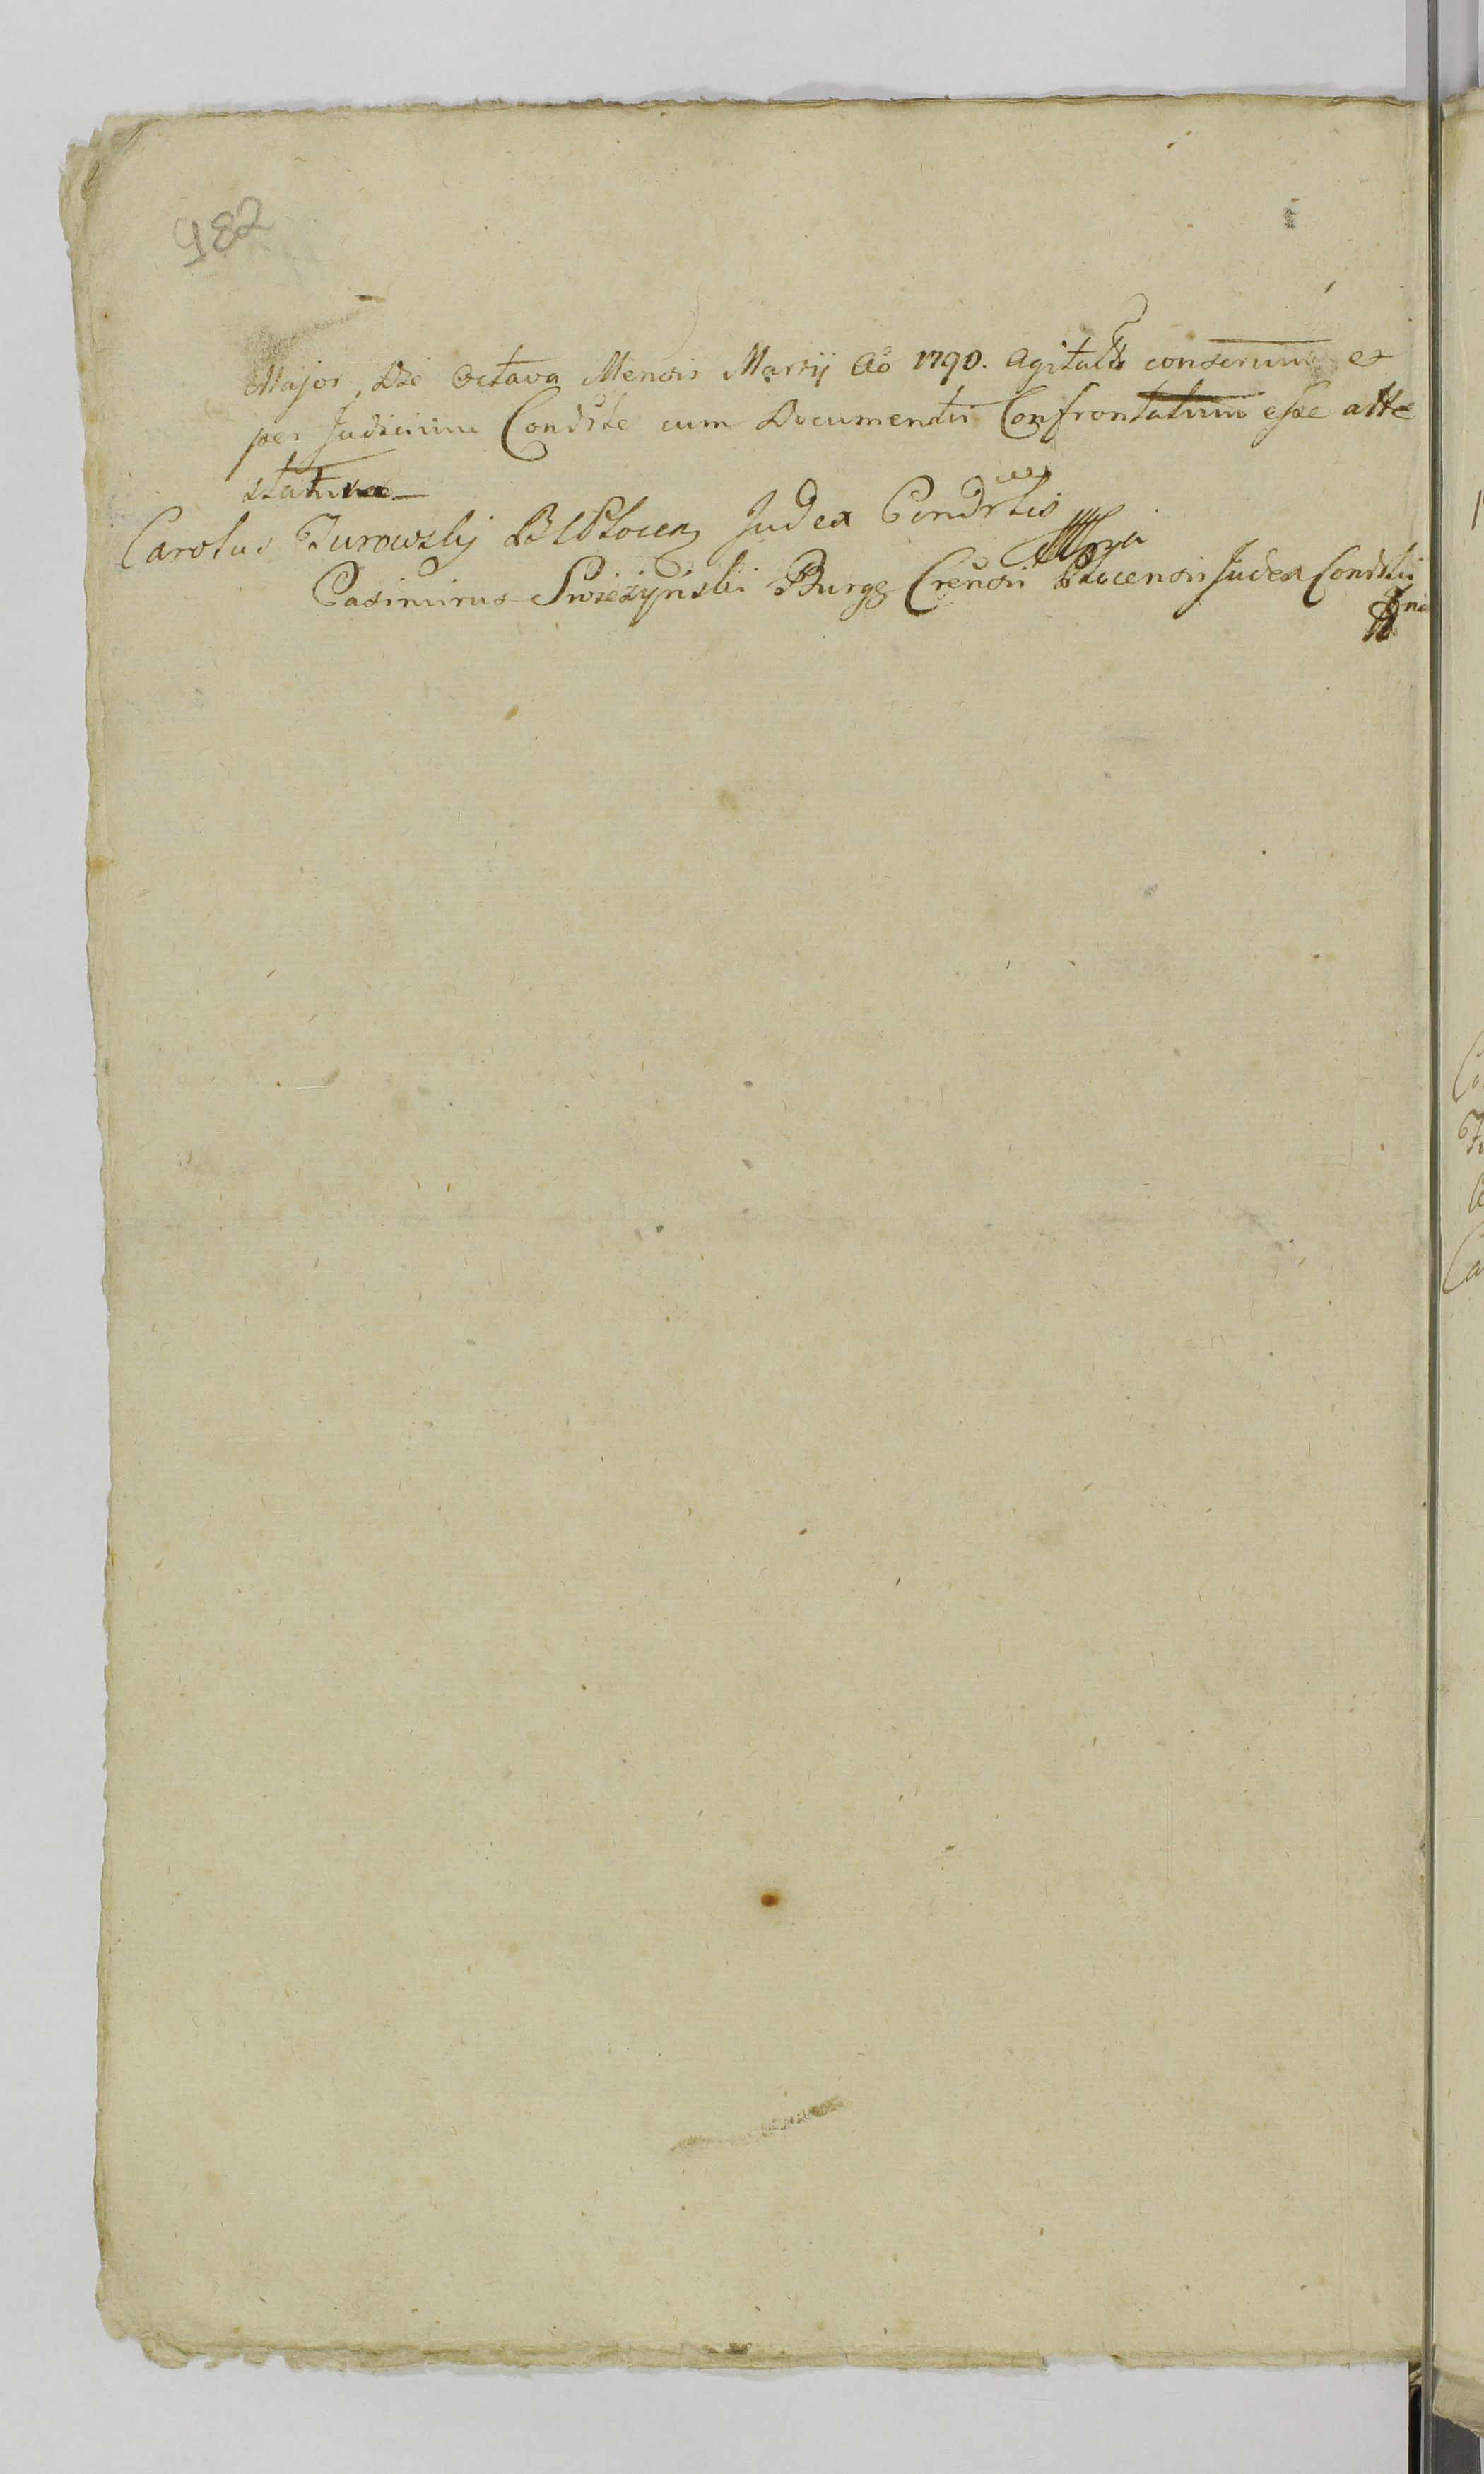 982
Major, Die Octava Mensis Martij Aõ 1790. agitatis conserum et
per Judicium Condrte cum Documentis Confrontatum esse atte
statur
Carolus Turowsky B Płocen Judex Condrtis
Casimirus Swiezynski Burg Crensis Plocensis Judex Condrtis